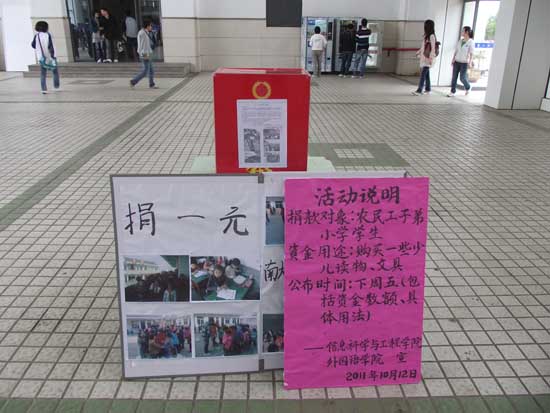 捐一元
南大
活动说明
捐款对象:农民工子弟
小学学生
资金用途:购买一些少
儿读物、文具
公布时间:下周五(包
括资金数额、具
体用法)
——信息科学与工程学院
外国语学院 宣
2011年10月12日